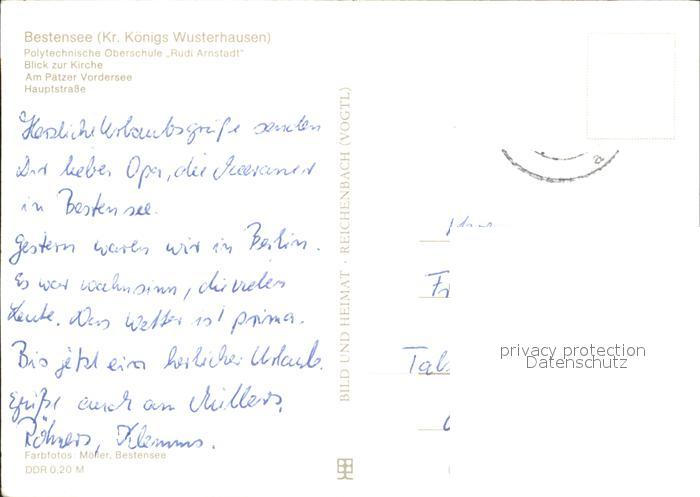 Bestensee (Kr. Königs Wusterhausen)
Polytechnische Oberschule „Rudi Arnstadt"
Blick zur Kirche
Am Pätzer Vordersee
Hauptstraße
Herzliche Urlaubsgrüße senden
Dir lieber Opa, die Meeraner
in Bestensee.
Gestern waren wir in Berlin.
Es war wahnsinn, die vielen
Leute. Das Wetter ist prima.
Bis jetzt ein herlicher Urlaub.
Grüße auch an Müllers,
Röhners, Klemms.
Farbfotos: Möller, Bestensee
DDR 0,20 M
BILD UND HEIMAT · REICHENBACH (VOGTL)
a
Fr
Tals
privacy protection
Datenschutz